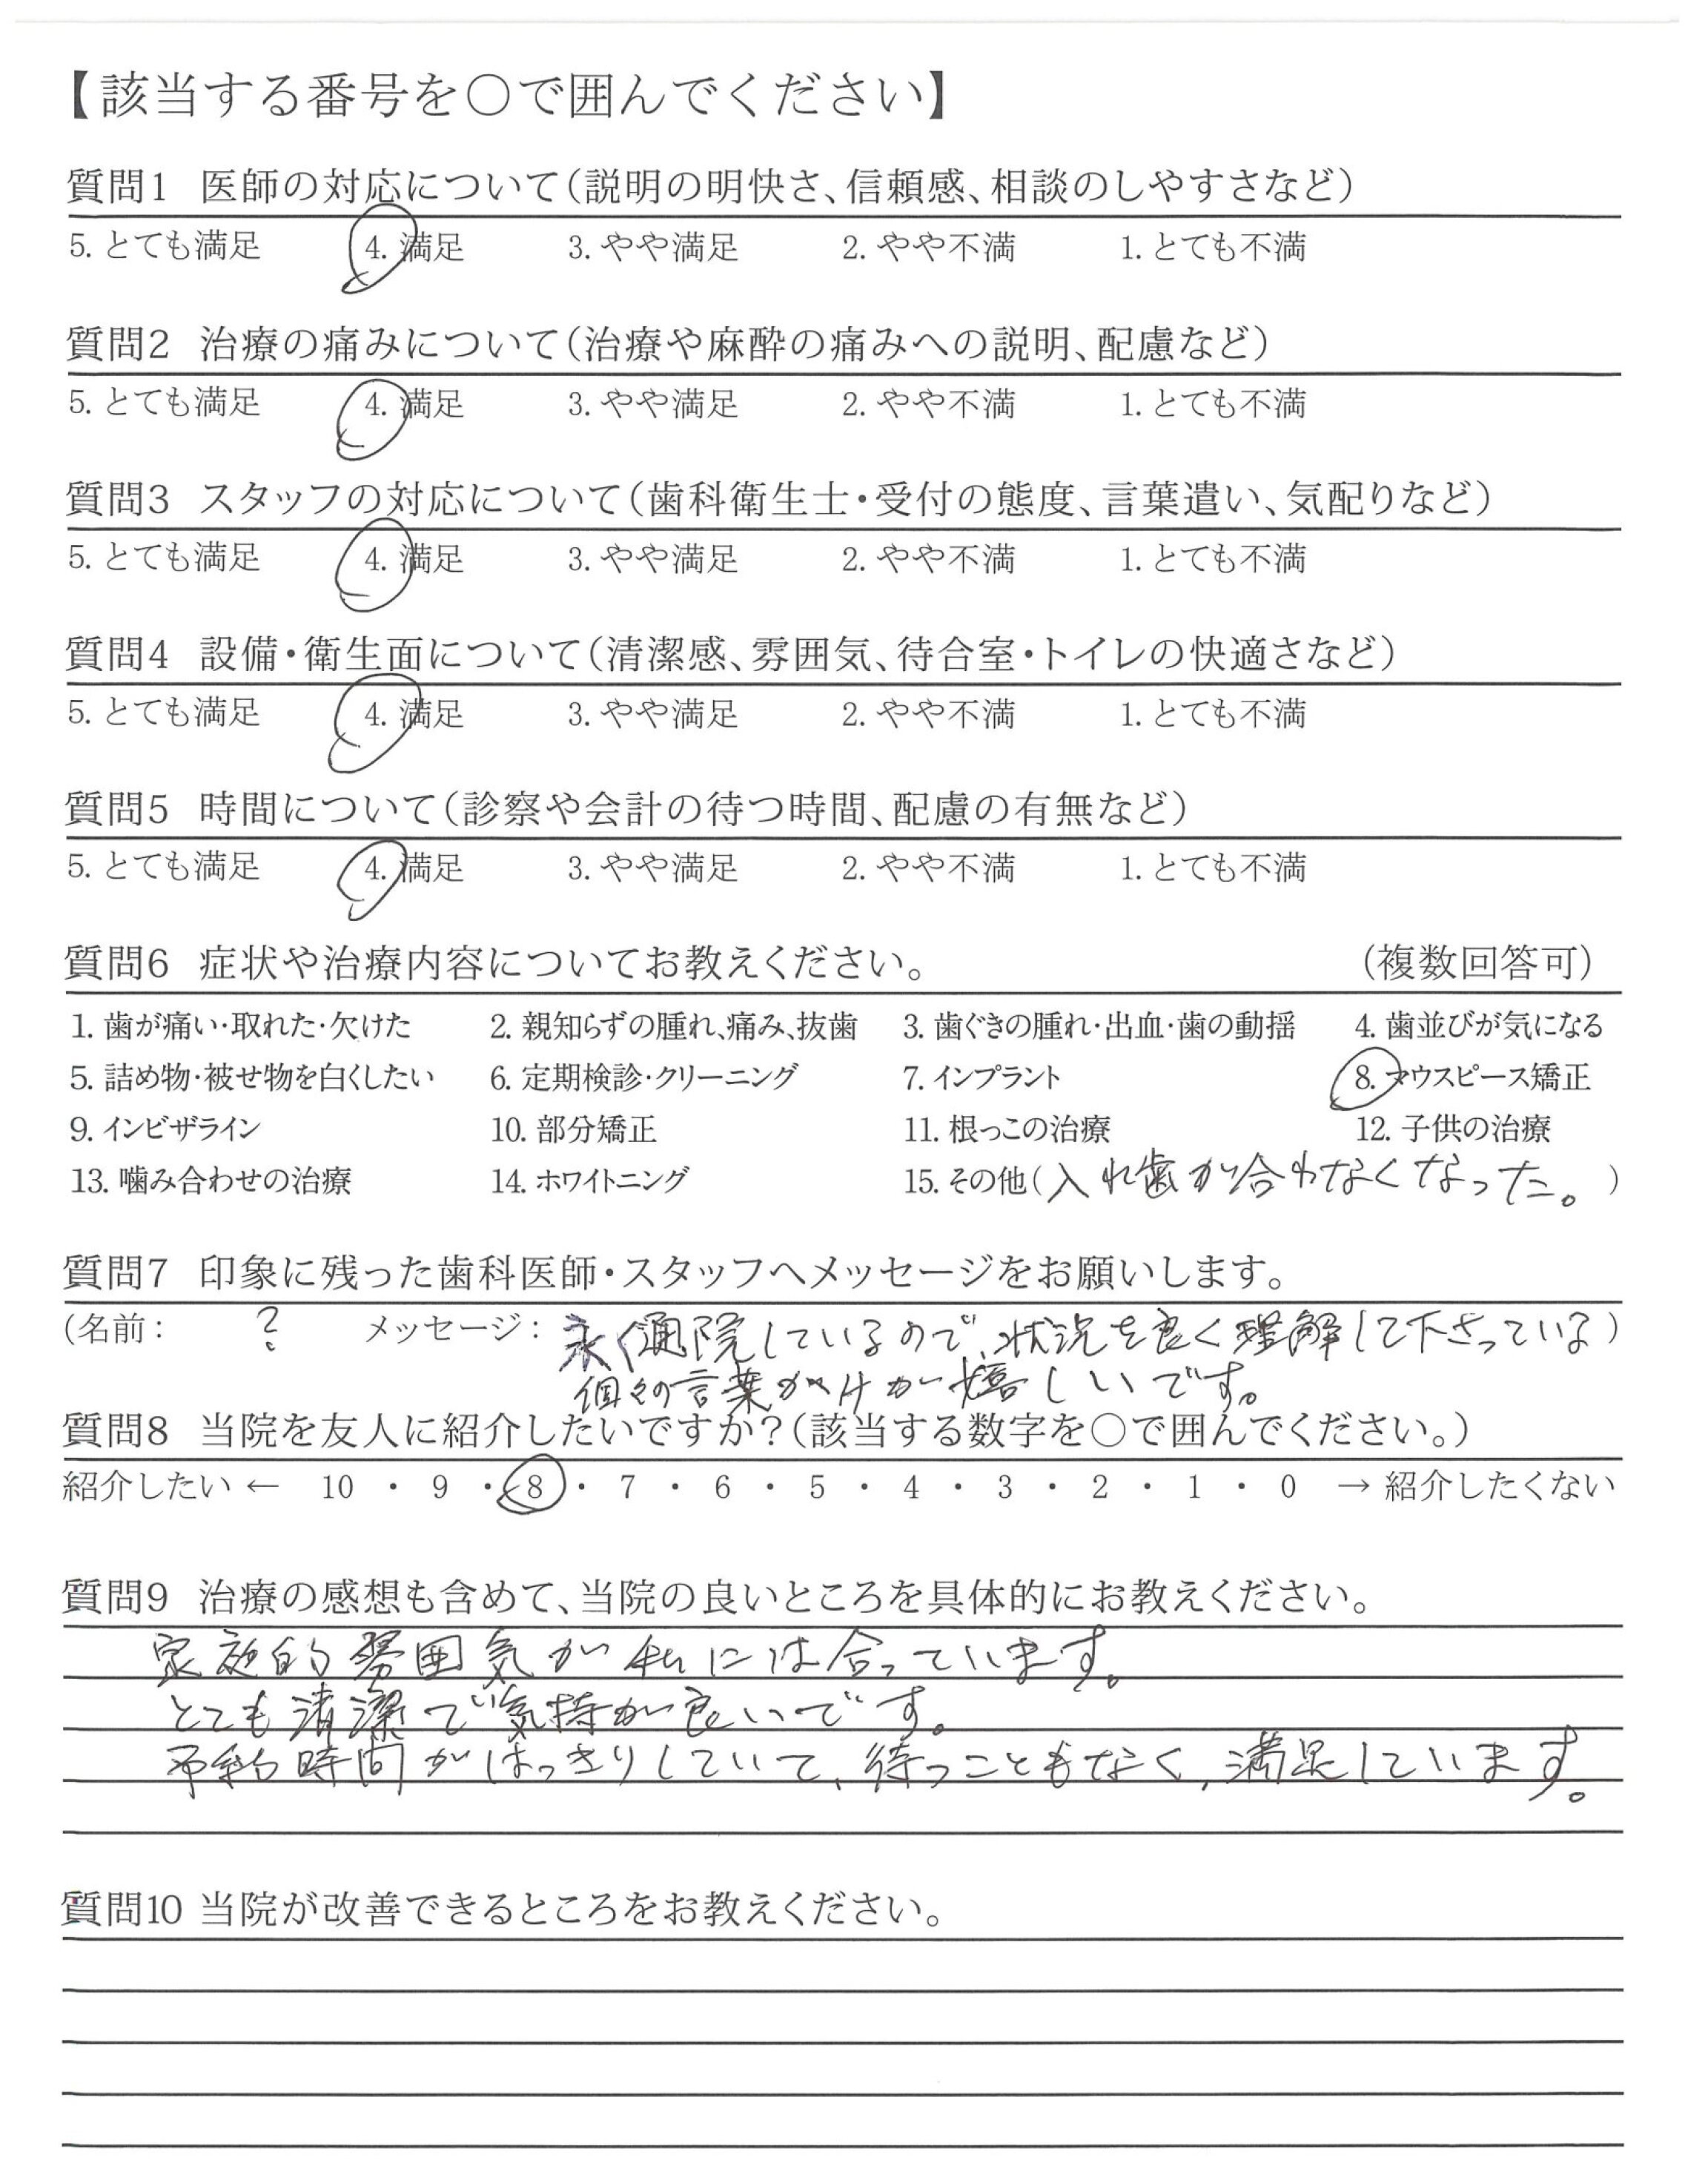 【該当する番号を〇で囲んでください】
質問1 医師の対応について（説明の明快さ、信頼感、相談のしやすさなど）
5. とても満足 4. 満足 3. やや満足 2. やや不満 1. とても不満
質問2 治療の痛みについて（治療や麻酔の痛みへの説明、配慮など）
5. とても満足 4. 満足 3. やや満足 2. やや不満 1. とても不満
質問3 スタッフの対応について（歯科衛生士・受付の態度、言葉遣い、気配りなど）
5. とても満足 4. 満足 3. やや満足 2. やや不満 1. とても不満
質問4 設備・衛生面について（清潔感、雰囲気、待合室・トイレの快適さなど）
5. とても満足 4. 満足 3. やや満足 2. やや不満 1. とても不満
質問5 時間について（診察や会計の待つ時間、配慮の有無など）
5. とても満足 4. 満足 3. やや満足 2. やや不満 1. とても不満
質問6 症状や治療内容についてお教えください。 （複数回答可）
1. 歯が痛い・取れた・欠けた 2. 親知らずの腫れ、痛み、抜歯 3. 歯ぐきの腫れ・出血・歯の動揺 4. 歯並びが気になる
5. 詰め物・被せ物を白くしたい 6. 定期検診・クリーニング 7. インプラント 8. マウスピース矯正
9. インビザライン 10. 部分矯正 11. 根っこの治療 12. 子供の治療
13. 噛み合わせの治療 14. ホワイトニング 15. その他（入れ歯が合わなくなった。）
質問7 印象に残った歯科医師・スタッフへメッセージをお願いします。
（名前： ? メッセージ：永く通院しているので、状況を良く理解して下さっている）
個々の言葉がけが嬉しいです。
質問8 当院を友人に紹介したいですか？（該当する数字を〇で囲んでください。）
紹介したい ← 10 ・ 9 ・ 8 ・ 7 ・ 6 ・ 5 ・ 4 ・ 3 ・ 2 ・ 1 ・ 0 → 紹介したくない
質問9 治療の感想も含めて、当院の良いところを具体的にお教えください。
家庭的雰囲気が私には合っています。
とても清潔で気持が良いです。
予約時間がはっきりしていて、待つこともなく、満足しています。
質問10 当院が改善できるところをお教えください。